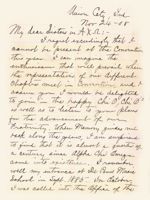 Union City, Ind.
Nov 24-08
My dear Sisters in A.X.Ω:-
I regret exceedingly that I
cannot be present at the Convention
this year. I can imagine the
enthusiasm that will prevail when
the representatives of our different
chapters meet in Convention and I
assure you I would be delighted
to join in "the happy Chi O Chi O"
as well as to listen to your plans
for the advancement of our
Fraternity. When Memory guides me
back along the years, I am surprised
to find that it is almost a quarter of
a century since Alpha Chi Omega
came into existence. I remember
well my entrance at De Pauw Music
School in Sept. 1885. In October
I was called into the office of the